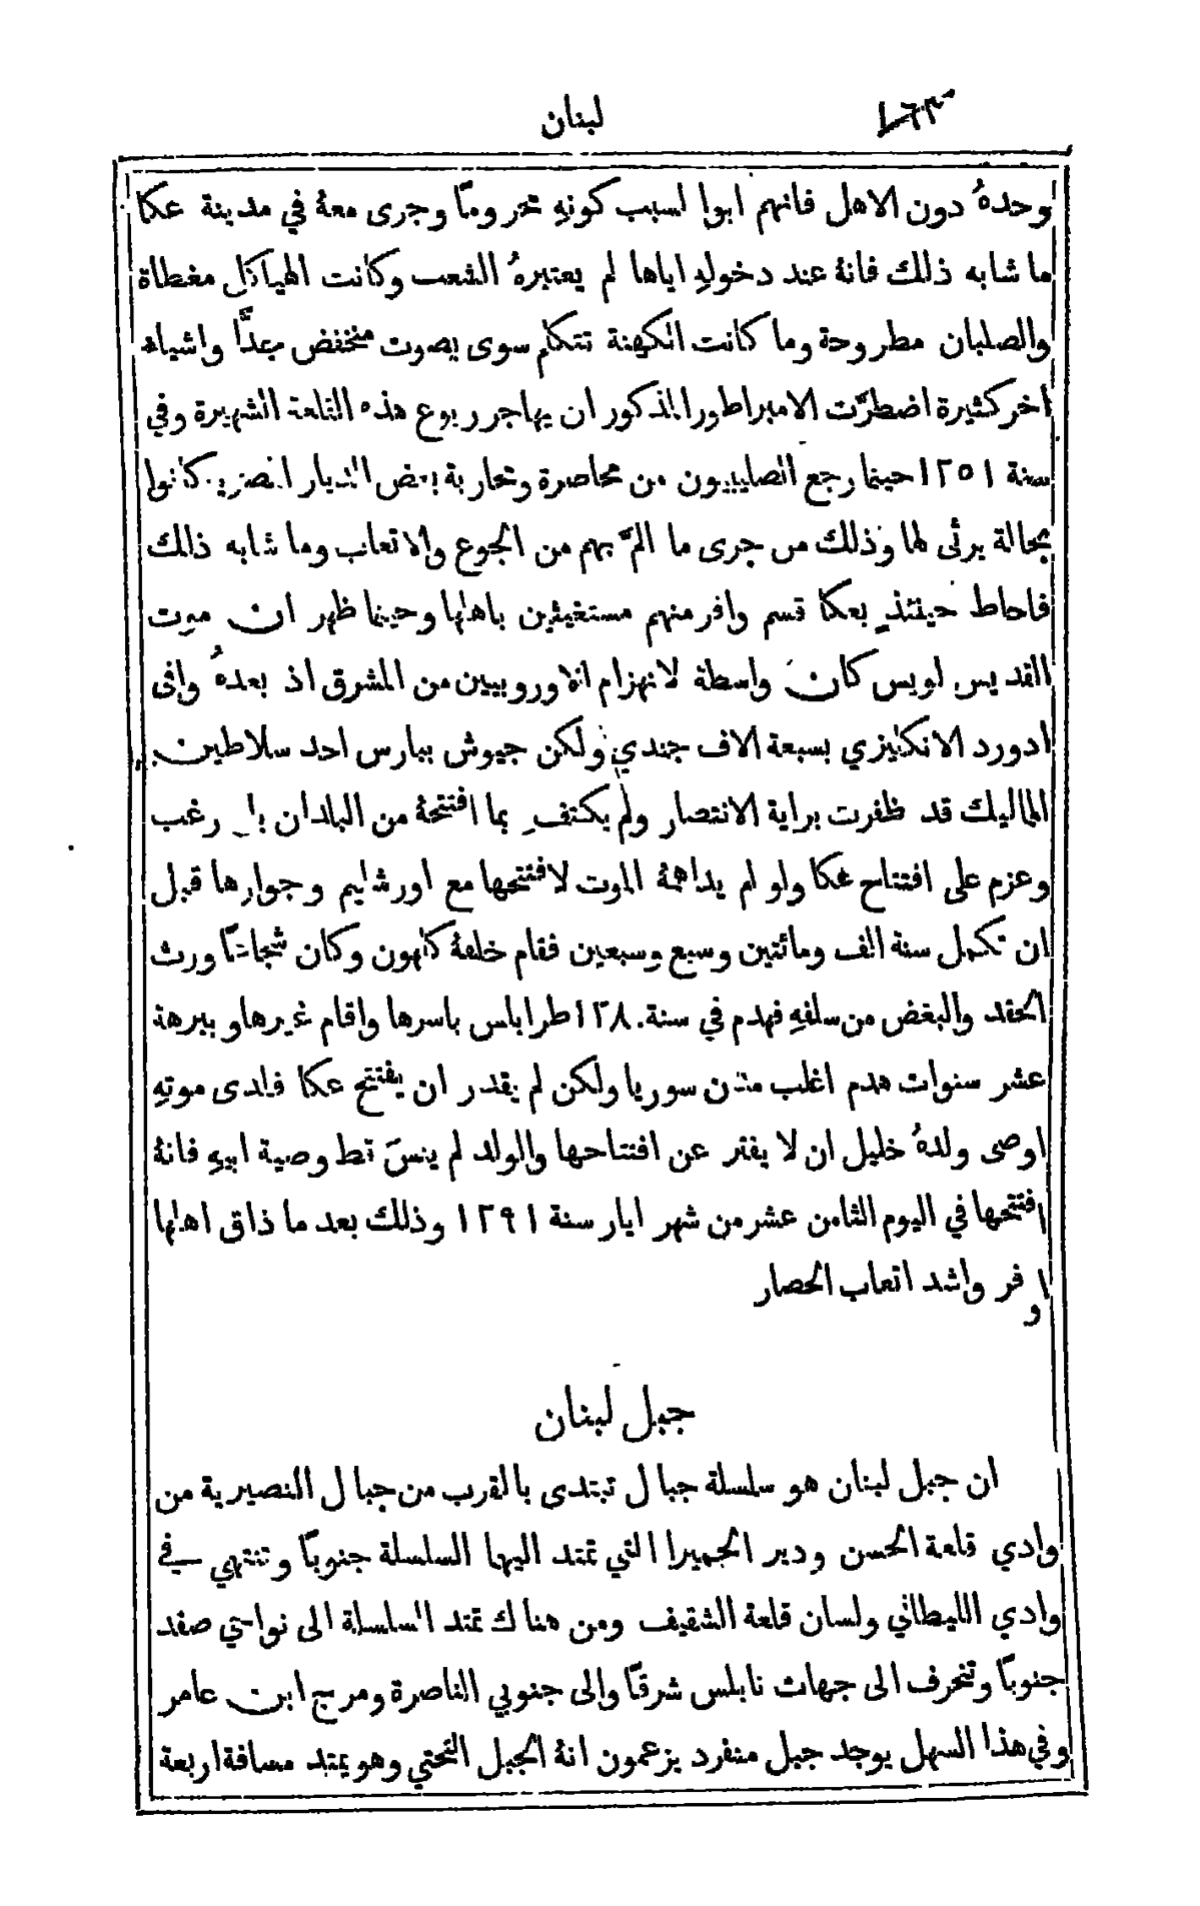 لبنان ١٦٣
وحدهُ دون الاهل فانهم ابوا لسبب كونهِ محرومًا وجرى معهُ في مدينة عكا
ما شابه ذلك فانهُ عند دخولهِ اياها لم يعتبرهُ الشعب وكانت الهياكل مغطاة
والصلبان مطروحة وما كانت الكهنة تتكلم سوى بصوت منخفض جدًّا واشياء
اخر كثيرة اضطرَّت الامبراطور المذكور ان يهاجر ربوع هذه القلعة الشهيرة وفي
سنة ١٢٥١ حينما رجع الصليبيون من محاصرة ومحاربة بعض الديار المصرية كانوا
بحالة يرثى لها وذلك من جرى ما المَّ بهم من الجوع والاتعاب وما شابه ذلك
فاحاط حينئذٍ بعكا قسم وافر منهم مستغيثين باهلها وحينما ظهر ان موت
القديس لويس كان واسطة لانهزام الاوروبيين من المشرق اذ بعدهُ وافى
ادورد الانكليزي بسبعة الاف جندي ولكن جيوش بيبارس احد سلاطين
المماليك قد ظفرت براية الانتصار ولم يكتفِ بما افتتحهُ من البلدان بل رغب
وعزم على افتتاح عكا ولو لم يداهمهُ الموت لافتتحها مع اورشليم وجوارها قبل
ان تكمل سنة الف ومائتين وسبع وسبعين فقام خلفهُ كلاهون وكان شجاعًا ورث
الحقد والبغض من سلفهِ فهدم في سنة ١٢٨٠ طرابلس باسرها واقام غيرها وببرهة
عشر سنوات هدم اغلب مدن سوريا ولكن لم يقدر ان يفتتح عكا فلدى موتهِ
اوصى ولدهُ خليل ان لا يفتر عن افتتاحها والولد لم ينسَ قط وصية ابيهِ فانهُ
افتتحها في اليوم الثامن عشر من شهر ايار سنة ١٢٩١ وذلك بعد ما ذاق اهلها
اوفر واشد اتعاب الحصار
جبل لبنان
ان جبل لبنان هو سلسلة جبال تبتدى بالقرب من جبال النصيرية من
وادي قلعة الحسن ودير الجميرا التي تمتد اليها السلسلة جنوبًا وتنتهي في
وادي الليطاني ولسان قلعة الشقيف ومن هناك تمتد السلسلة الى نواحي صفد
جنوبًا وتنحرف الى جهات نابلس شرقًا والى جنوبي الناصرة ومرج ابن عامر
وفي هذا السهل يوجد جبل منفرد يزعمون انهُ الجبل التحتي وهو يمتد مسافة اربعة